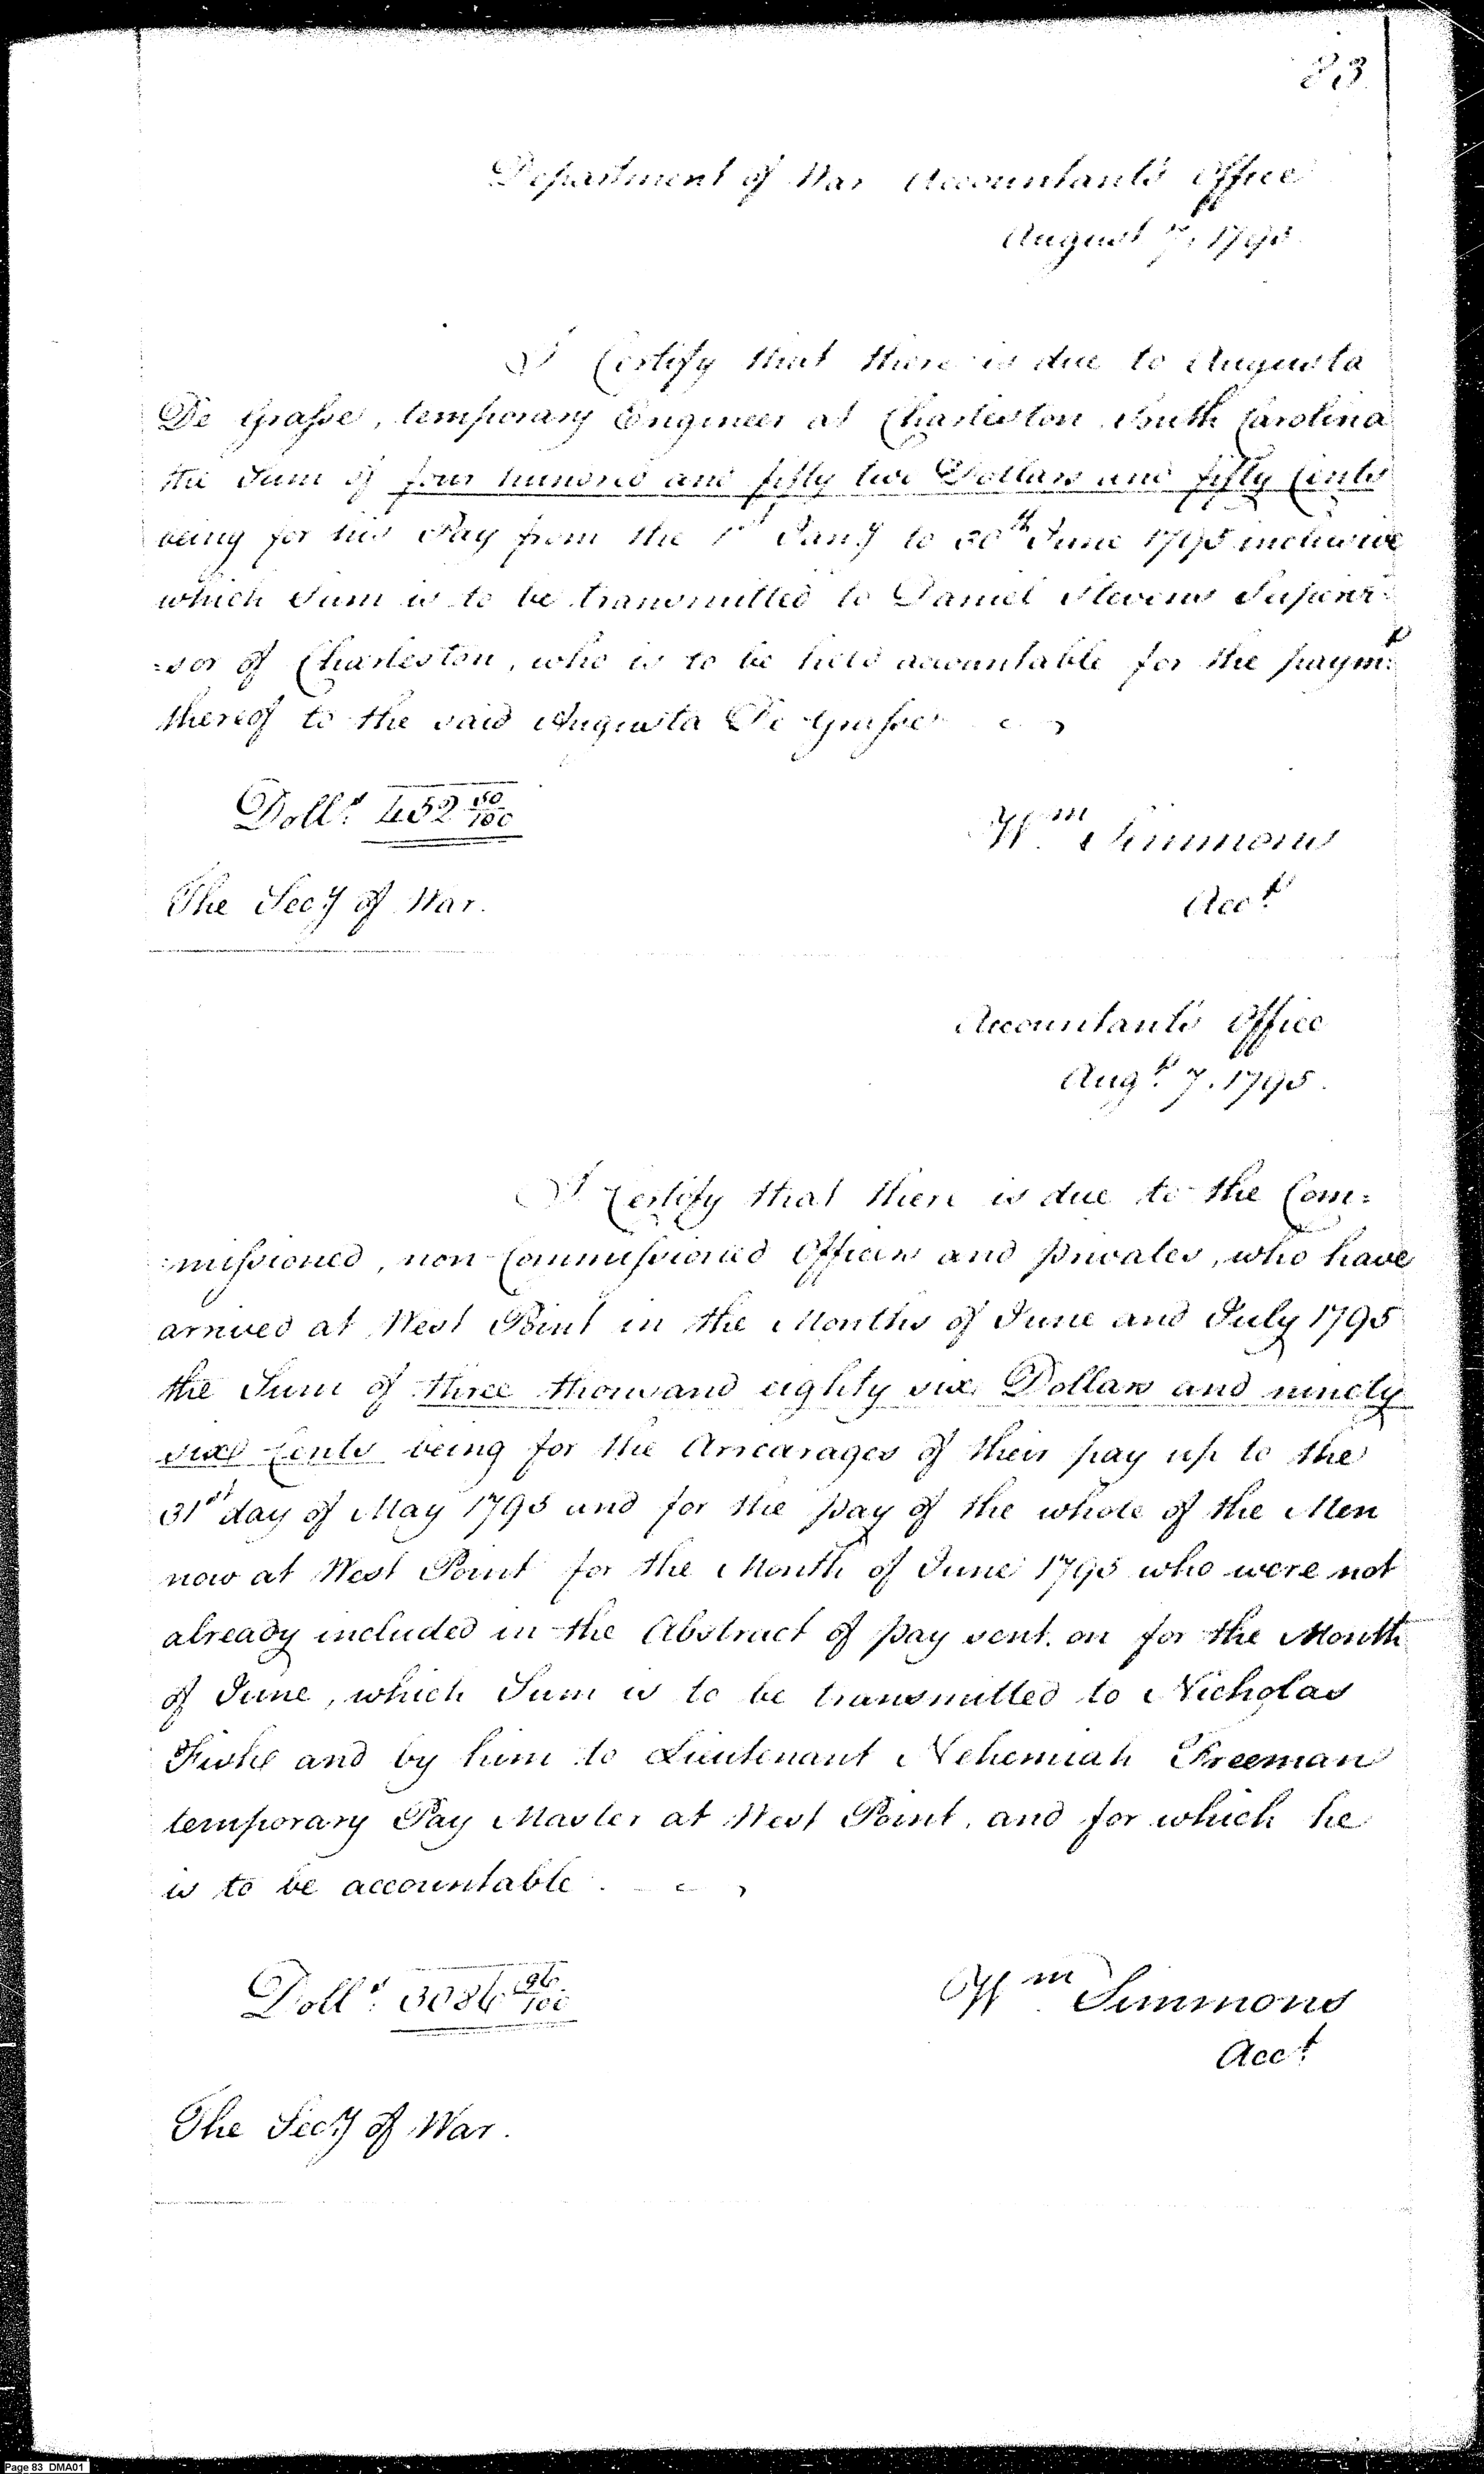 83
Department of War Accountant's Office
August 7. 1795.
I Certify that there is due to Augusta
De Grasse, temporary Engineer at Charleston South Carolina
the Sum of four hundred and fifty two Dollars and fifty Cents
being for his Pay from the 1st Jany to 30th June 1795 inclusive
which Sum is to be transmitted to Daniel Stevens Supervi=
=sor of Charleston, who is to be held accountable for the paymt
thereof to the said Augusta De Grasse
Dolls. 452 50/100
Wm Simmons
The Secy of War.
Acct
Accountant's Office
Augt. 7. 1795.
I Certify that there is due to the Com=
=missioned, non-Commissioned Officers and privates, who have
arrived at West Point in the Months of June and July 1795
the Sum of three thousand eighty six Dollars and ninety
six Cents being for the Arrearages of their pay up to the
31st day of May 1795 and for the pay of the whole of the Men
now at West Point for the Month of June 1795 who were not
already included in the Abstract of pay sent on for the Month
of June, which Sum is to be transmitted to Nicholas
Fishe and by him to Lieutenant Nehemiah Freeman
temporary Pay Master at West Point, and for which he
is to be accountable.
Dolls. 3086 96/100
Wm Simmons
Acct
The Secy of War.
Page 83 DMA01